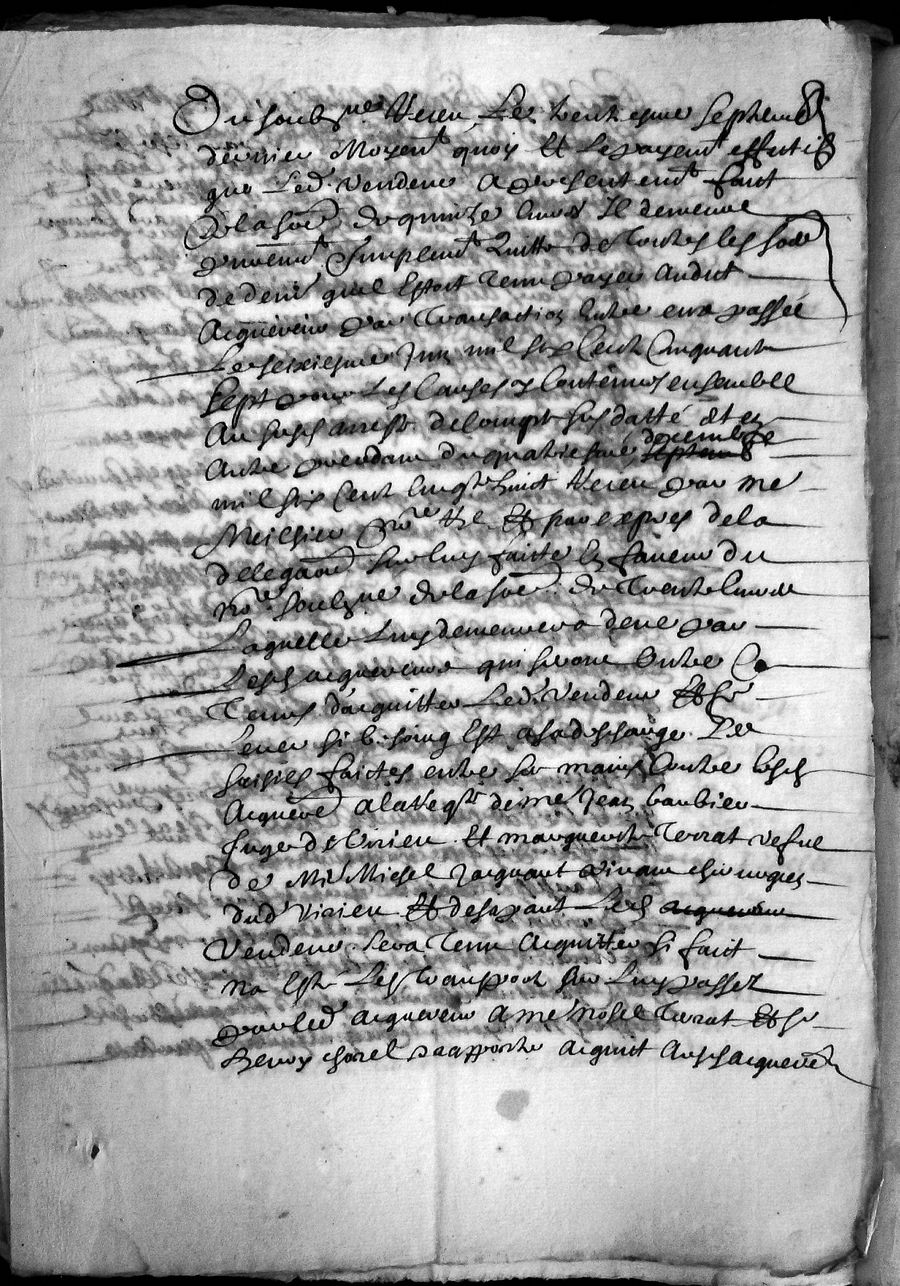 Du soubzne Receu Le trentiesme Septemb
dernier Moyent quoy Et Le payemt effectif
que Led. Vendeur A presentemt faict
De la so͂e de quinze livres Il demeure
puremt Simplemt Quitte de Toutes les so͂es
de denie quil Estoit Tenu payer Audict
Acquereur par Transaction Entre eux passée
Le seiziesme Juin mil six Cent Cinquante
Sept pour Les Causes y Contenues ensemble
Au susd arrest de compte sus datté Et en
Autre precedant du quatriesme septemb decembre
mil six Cent Cinqte huict Receu par me
Meilsieu nore Et par exprés de la
delegaon sur luy faicte En faveur du
nore Soubzne de la so͂e de Trente livres
Laquelle Luy demeurera deue par
Lesd acquereur qui seront Outre Ce
Tenus d'acquitter Led. Vendeur Et fe
Lever si besoing Est a sa descharge Les
saisies faictes entre ses mains Contre lesd
Acquere A la Reqte de me Jean barbier
Juge de Virieu Et marguerite Terrat vefve
de Me Michel Jacquant Vivant chirurgien
dud Virieu Et de sa part Led acquereur
Vendeur Sera Tenu Acquitter si faict
na Esté Les Transport sur Luy passez
par led acquereur A me Nohel Terrat Et sr
Benoy chorel Rapporter acquict Ausd acquere